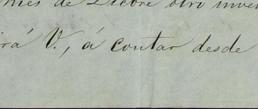 de Licore otro inven
rá V., á contar desde